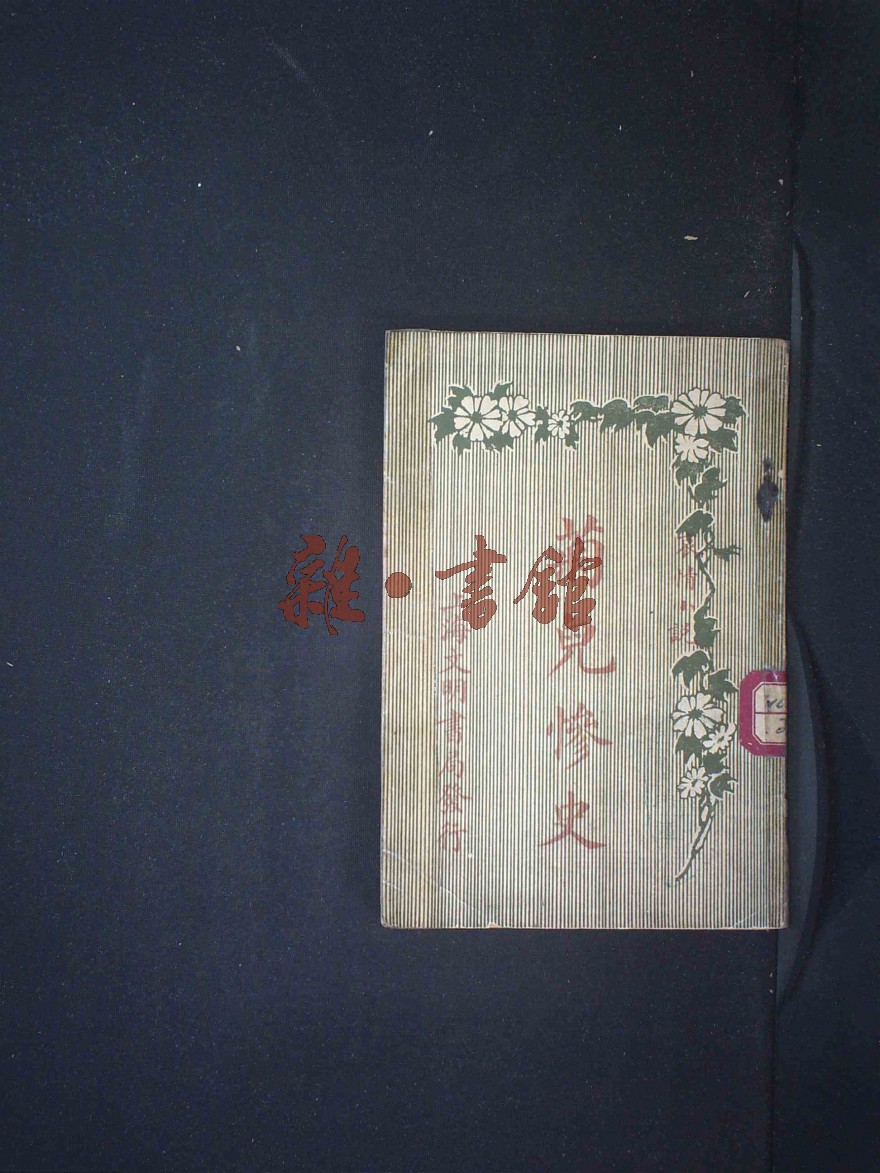 哀情小說
菊兒慘史
上海文明書局發行
雜·書館